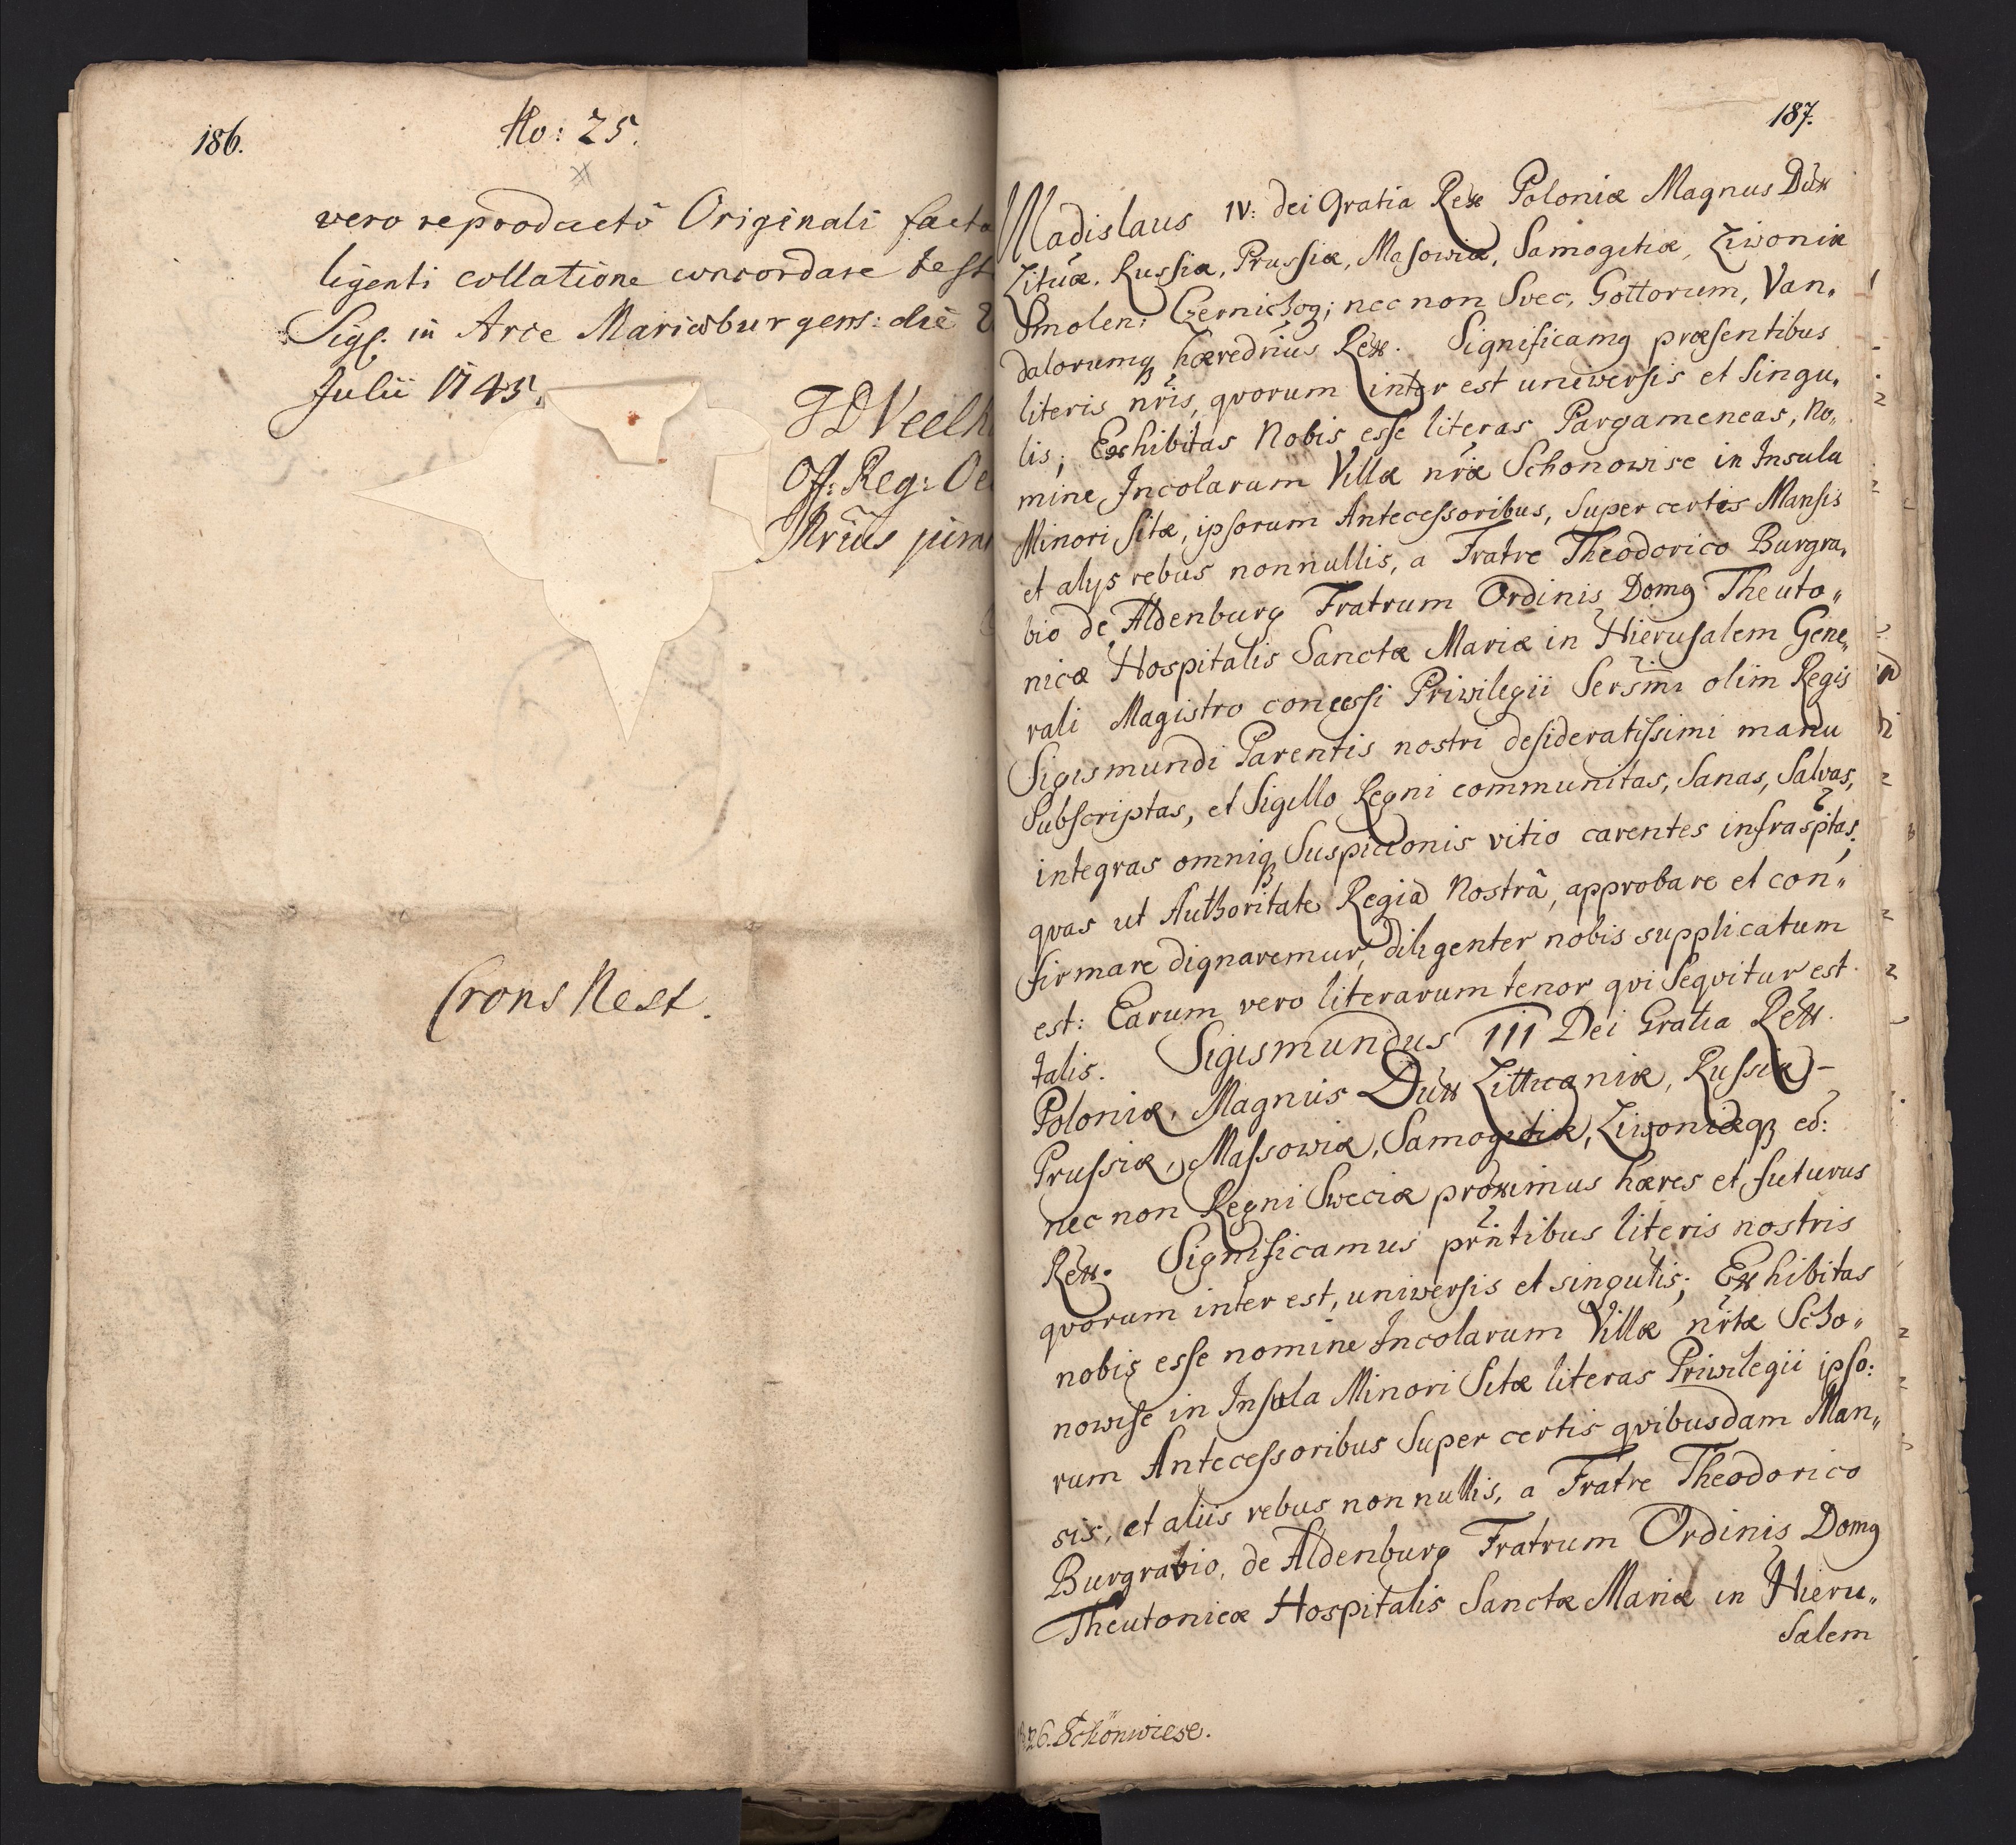 186.
No: 25.
vero reproducto Originali facta
ligenti collatione concordare test
Sigl. in Arce Mariæburgens: die
Julii 1745.
Off: Reg: Oe
Nrius jura
Crons Nest.
187.
Wladislaus IV: dei Gratia Rex Poloniæ Magnus Dux
Lituæ, Russiæ, Prussiæ, Masowiæ, Samogitiæ, Liwoniæ
Smolen: Czernichog; nec non Svec, Gottorum, Van„
dalorumq hæredrius Rex. Significamg præsentibus
literis nris, qvorum inter est uniwersis et singu„
lis; Exhibitas Nobis esse literas Pargameneas, No„
mine Incolarum Villæ nræ Schonowise in Insula
Minori sitæ, ipsorum Antecessoribus, super certis Mansis
et alys rebus nonnullis, a Fratre Theodorico Burgra„
bio de Aldenburg Fratrum Ordinis Domg Theuto„
nicæ Hospitalis Sanctæ Mariæ in Hierusalem Gene„
rali Magistro concessi Priwilegii Sersmi olim Regis
Sigismundi Parentis nostri desideratissimi manu
Subscriptas, et Sigillo Regni communitas, Sanas, Salvas,
integras omniq Suspicionis vitio carentes infrasptas;
qvas ut Authoritate Regia Nostrâ, approbare et con„
firmare dignaremur, diligenter nobis supplicatum
est: Earum vero literarum tenor qvi Seqvitur est
talis. Sigismundus III Dei Gratia Rex
Poloniæ, Magnus Dux Littuaniæ, Russiæ –
Prussiæ, Massowiæ, Samogitiæ, Liwoniæq eð:
nec non Regni Sweciæ proximus hæres et futurus
Rex. Significamus prntibus literis nostris
qvorum inter est, uniwersis et singulis; Exhibitas
nobis esse nomine Incolarum Villæ nrtæ Scho„
nowise in Insula Minori Sitæ literas Priwilegii ipso:
rum Antecessoribus Super certis qvibusdam Man„
sis, et aliis rebus nonnullis, a Fratre Theodorico
Burgrabio, de Aldenburg Fratrum Ordinis Domg
Theutonicæ Hospitalis Sanctæ Mariæ in Hieru„
Salem
26. Schönwiese.